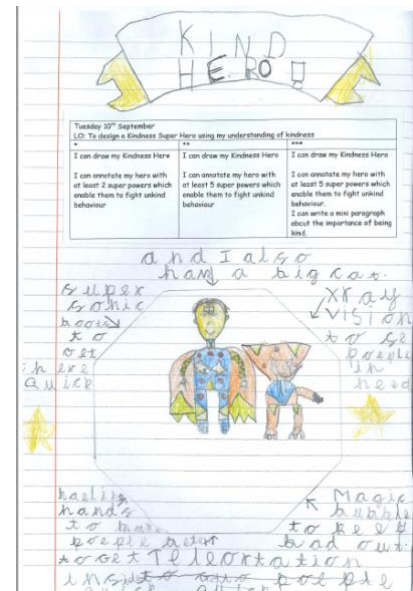 KIND
HERO!
Tuesday 10th September
LO: To design a Kindness Super Hero using my understanding of kindness
* ** ***
I can draw my Kindness Hero
I can annotate my hero with
at least 2 super powers which
enable them to fight unkind
behaviour
I can draw my Kindness Hero
I can annotate my hero with
at least 5 super powers which
enable them to fight unkind
behaviour
I can draw my Kindness Hero
I can annotate my hero with
at least 5 super powers which
enable them to fight unkind
behaviour.
I can write a mini paragraph
about the importance of being
kind.
and I also
have a big cat.
super
sonic
boots
to
get
there
quick
xray
vision
to se
people
in
need
healing
hands
to make
people beter
Magic
bubble
to keep
bad out.
to get Teleortation